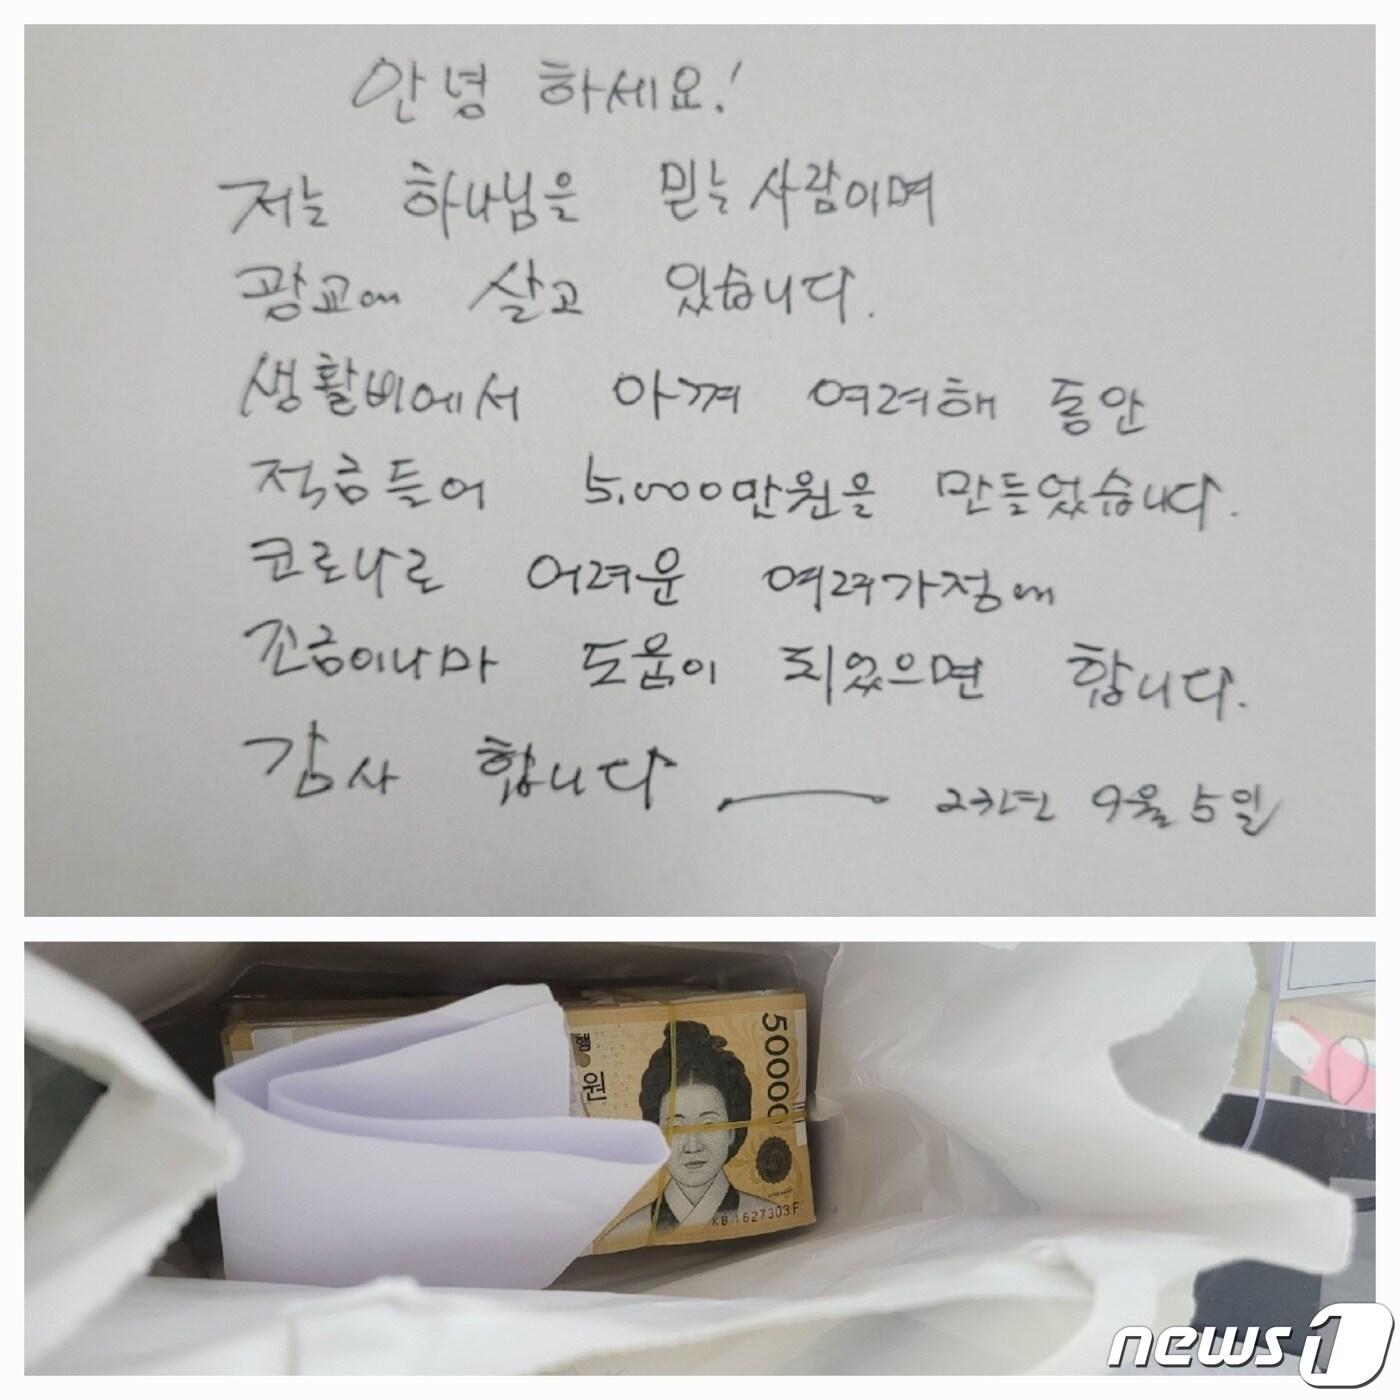 안녕 하세요!
저는 하나님을 믿는 사람이며
광교에 살고 있습니다.
생활비에서 아껴 여려해 동안
적금들어 5,000만원을 만들었습니다.
코로나로 어려운 여려가정에
조금이나마 도움이 되었으면 합니다.
감사 합니다 — 23년 9월 5일
50000
원
KB 1627303 F
news1